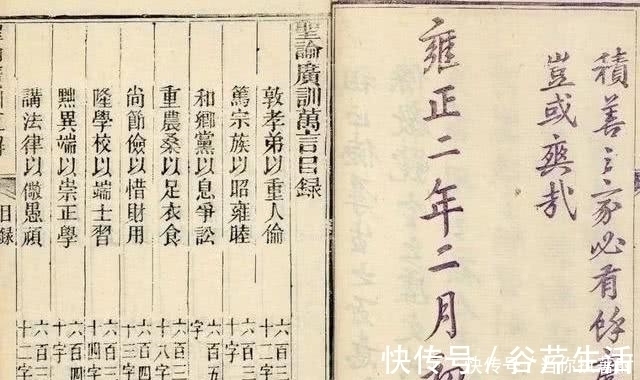 積善之家必有餘
豈或爽哉
雍正二年二月初
聖諭廣訓萬言目錄
敦孝弟以重人倫 六百三十二字
篤宗族以昭雍睦 六百三
和鄉黨以息爭訟 六百五
重農桑以足衣食 六百三十八字
尚節儉以惜財用 六百四十三字
隆學校以端士習 六百四十四字
黜異端以崇正學 六百四十字
講法律以儆愚頑 六百三
目錄
快传号